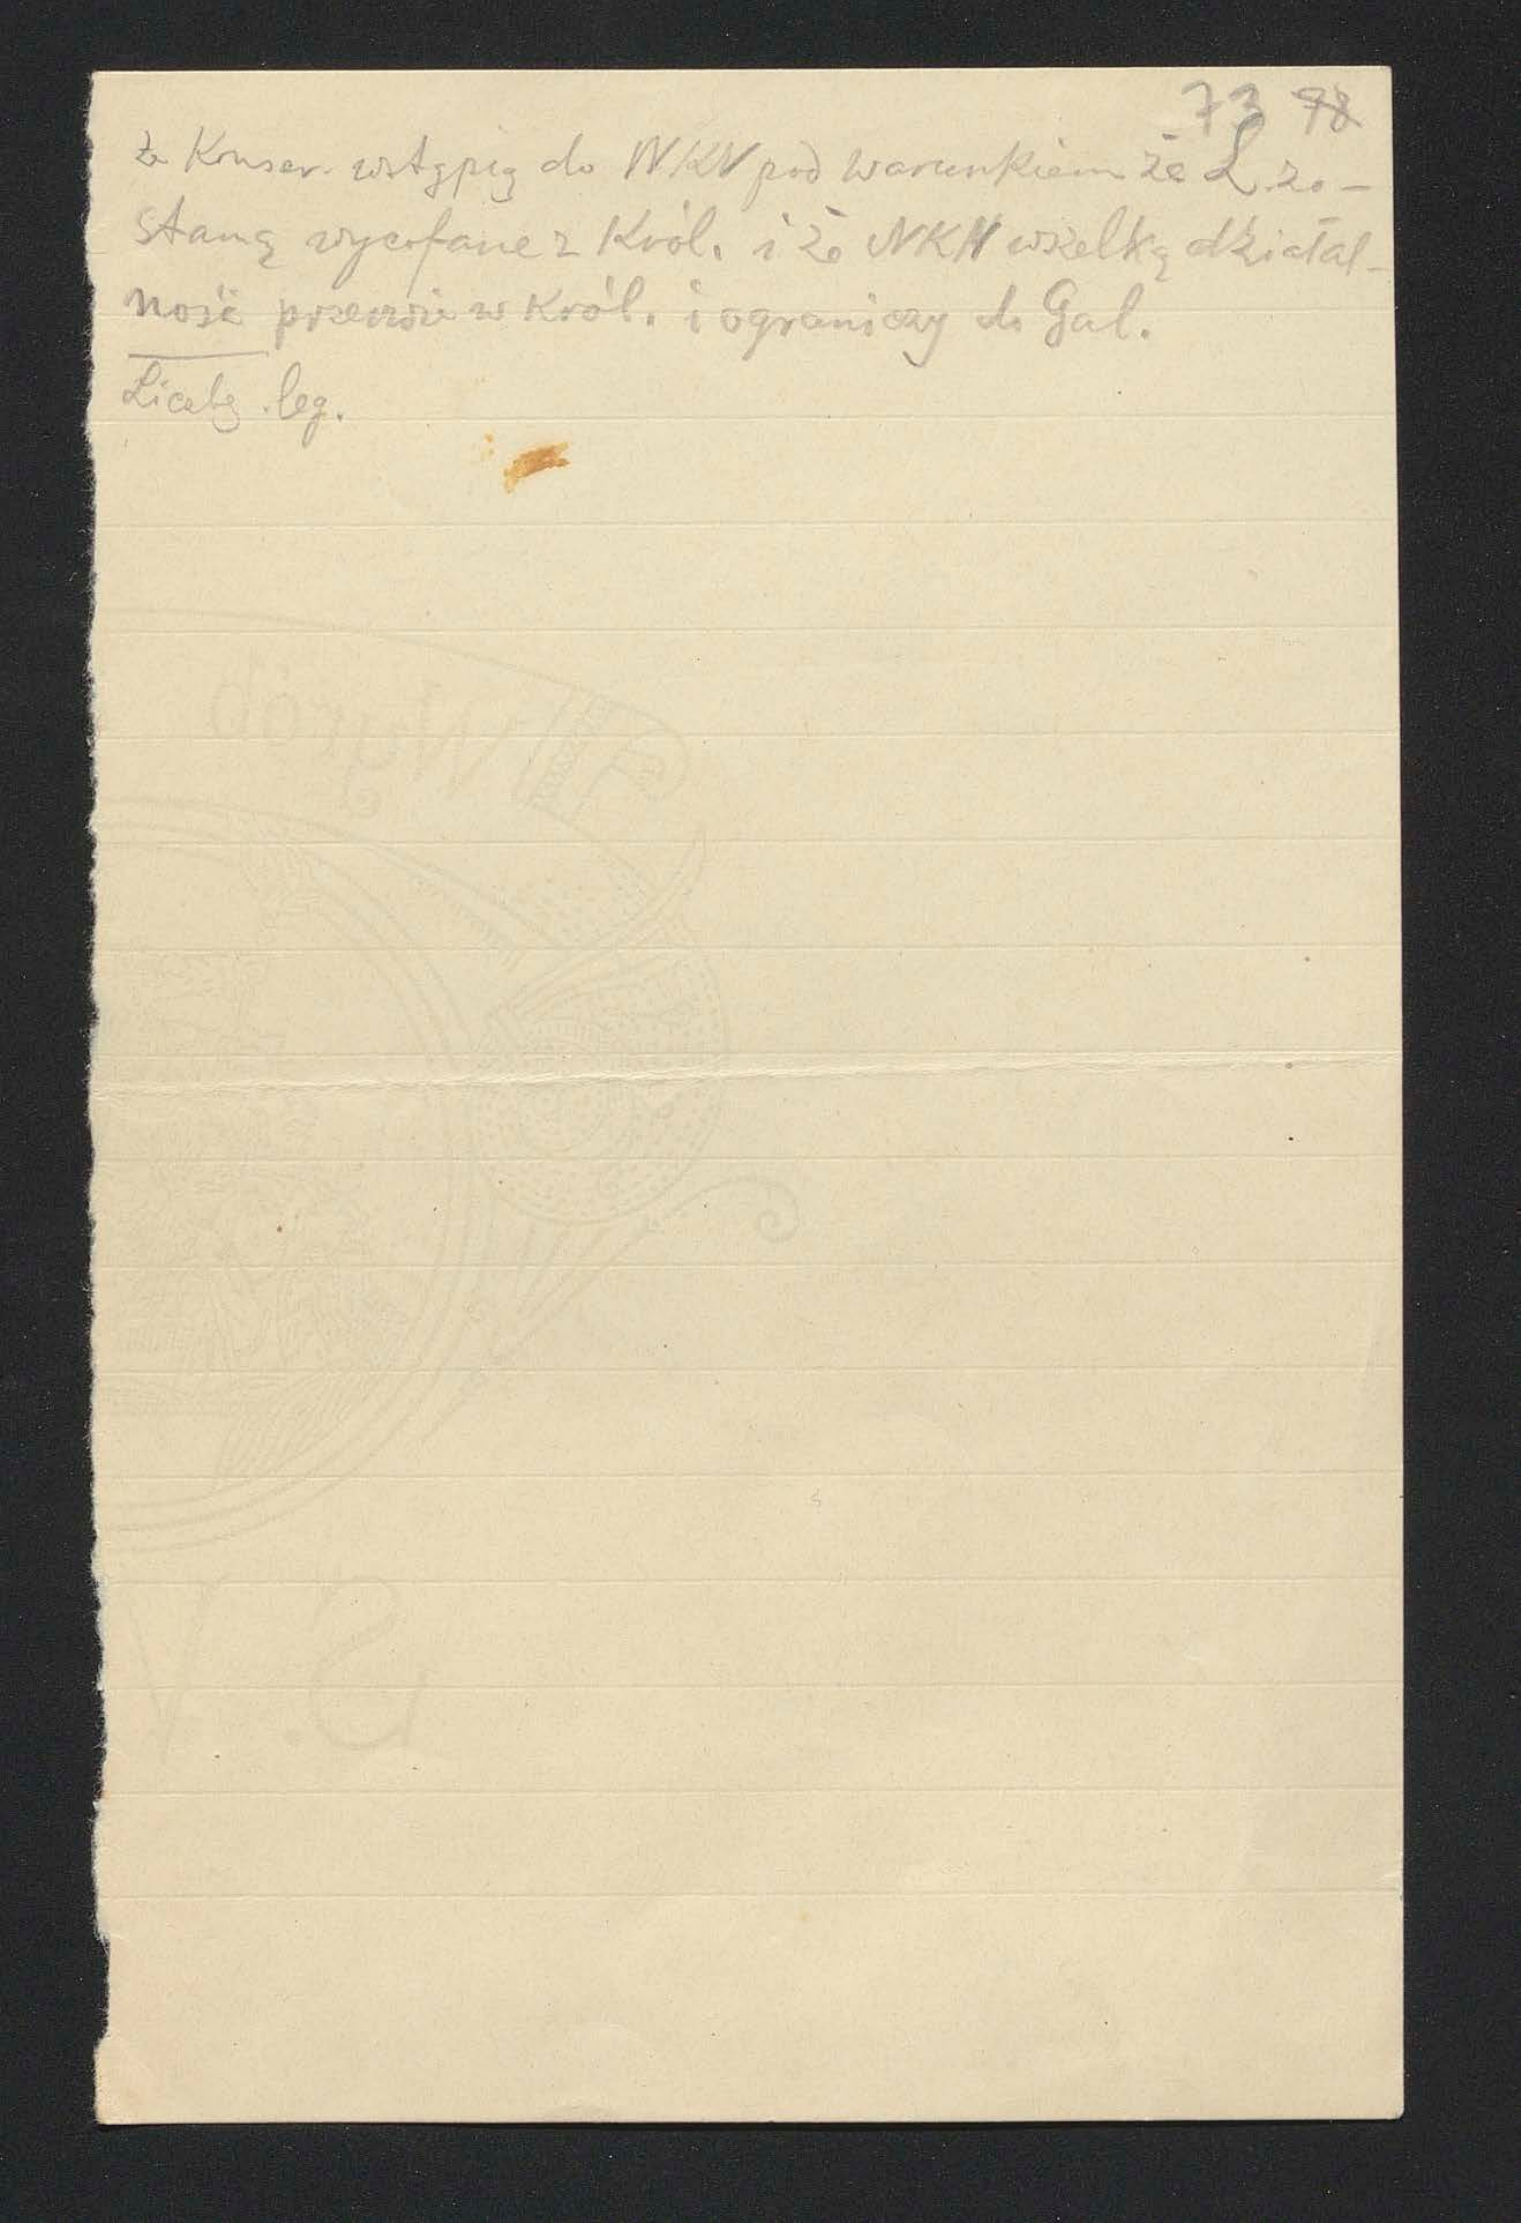 73 98
że Konser. wstąpią do NKN pod warunkiem że L zo-
staną wycofane z Król. i że NKN wszelką działal-
ność przerwie w Król. i ograniczy do Gal.
Liczby leg.
Wyrób
S.